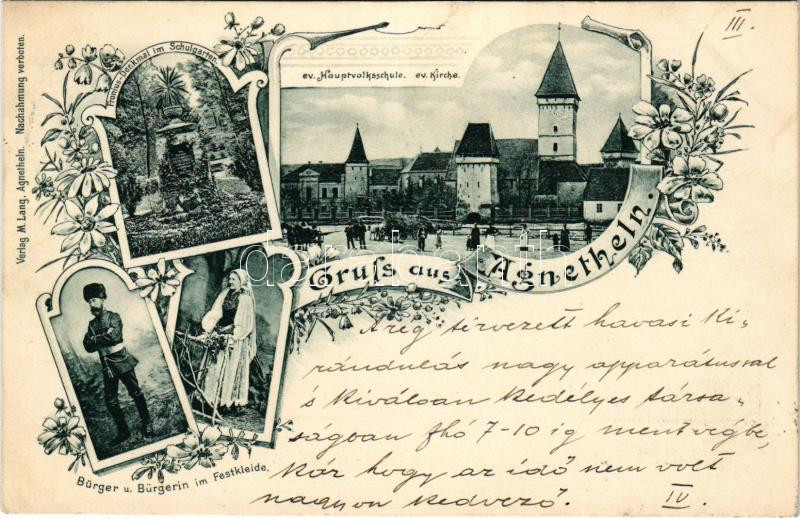 III.
Fronius-Denkmal im Schulgarten.
ev. Hauptvolksschule. ev. Kirche.
Verlag M. Lang, Agnetheln. Nachahmung verboten.
Gruss aus Agnetheln.
darabanth.com
Bürger u. Bürgerin im Festkleide.
A rég tervezett havasi Ki-
rándulás nagy apparátussal
s Kiválóan Kedélyes társa-
ságban fhó 7-10 ig mentvégbe,
Kár hogy az idő nem volt
nagyon Kedvező.
IV.